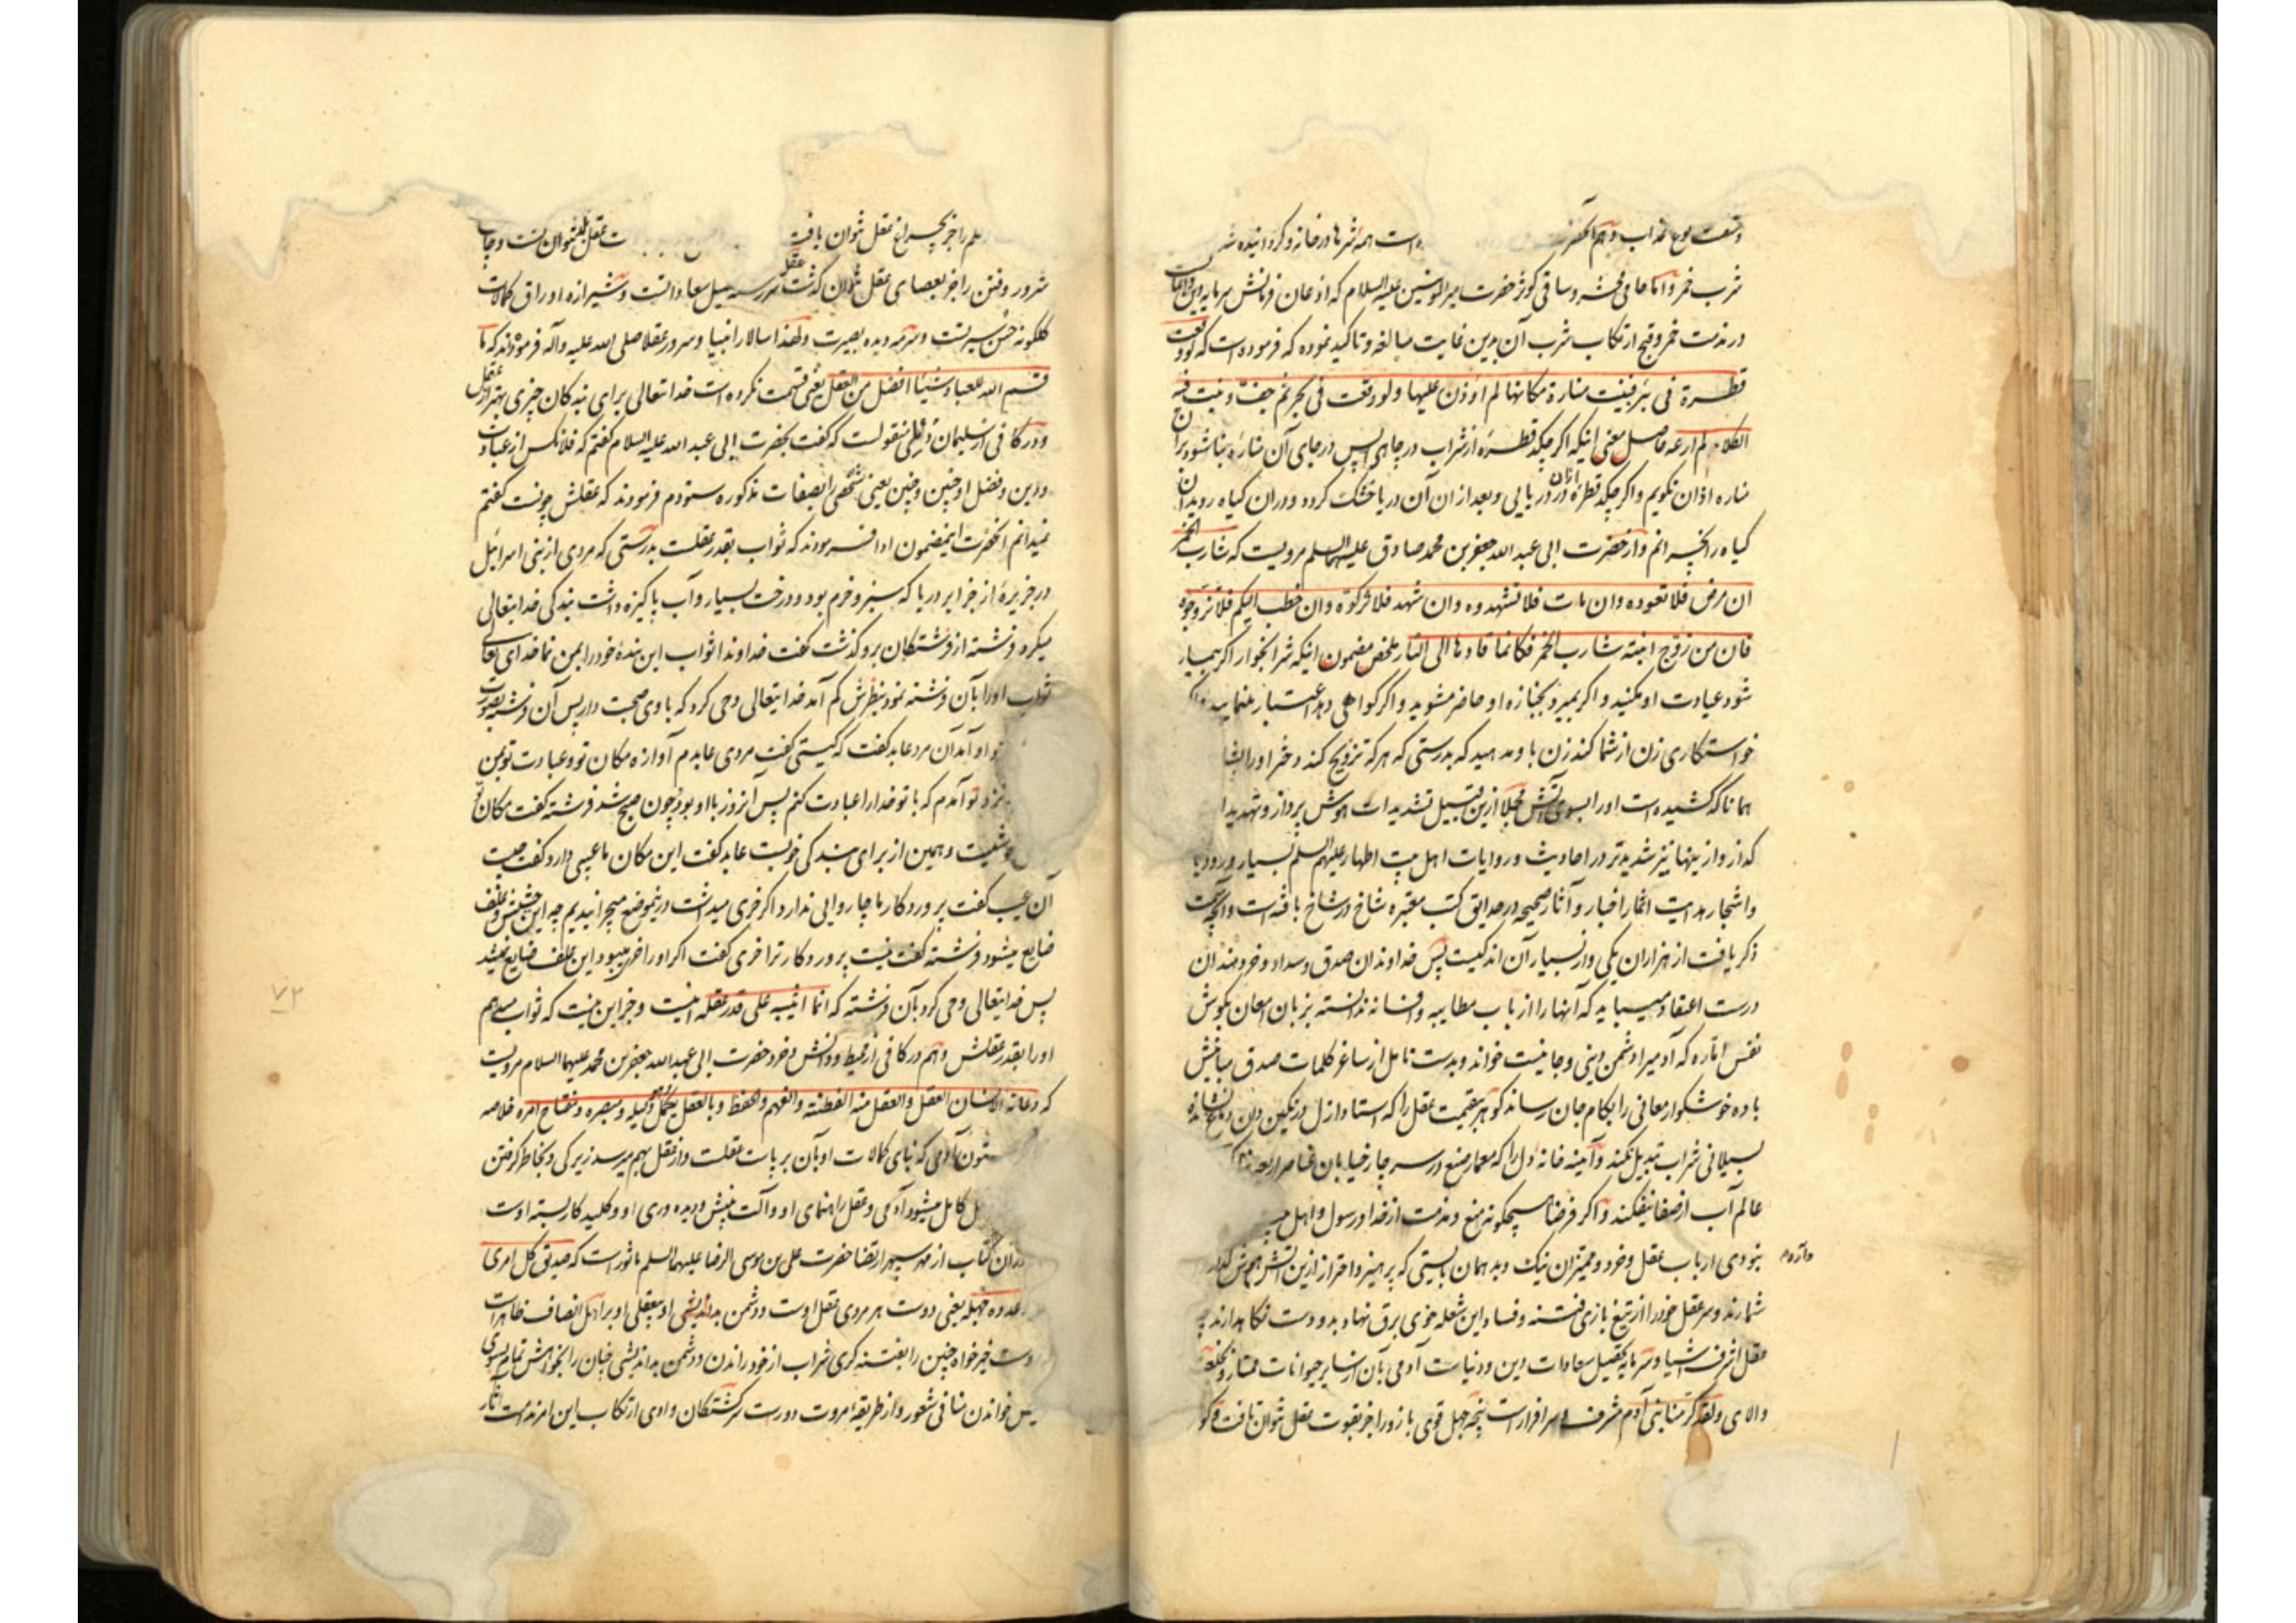 است همه شرها در خانه و گردانیده شد
شرب خمر و اما حامی محشر و ساقی کوثر حضرت امیرالمؤمنین علیه السلام که اذعان فرمانش سرمایه دین
در مذمت خمر و قبح ارتکاب شرب آن بدین غایت مبالغه و تاکید نموده که فرموده است که لو وقعت
قطرة فی بئر فبنیت منارة مکانها لم اؤذن علیها ولو وقعت فی بحر ثم جف و نبت فیه
الکلاء لم ارعه حاصل معنی اینکه اگر چکد قطره از شراب در چاهی پس در جای آن مناره بنا شود بران
مناره اذان نگویم و اگر چکد قطره ازان در دریایی و بعد از ان آن دریا خشک گردد و دران گیاه روید ان
گیاه را نچرانم و از حضرت ابی عبد الله جعفر بن محمد صادق علیهما السلم مرویست که شارب الخمر
ان مرض فلا تعودوه و ان مات فلا تشهدوه و ان شهد فلا تزکوه و ان خطب الیکم فلا تزوجوه
فان من زوج ابنته شارب الخمر فکانما قادها الی النار ملخص مضمون اینکه شرابخوار اگر بیمار
شود عیادت او مکنید و اگر بمیرد بجنازه او حاضر مشوید و اگر گواهی دهد اعتبار منمایید
خواستگاری زن از شما کند زن باو مدهید که بدرستی که هرکه تزویج کند دختر او را
همانا که کشیده است او را بسوی آتش مجملا ازین قبیل تشدیدات هوش پرداز و تهدیدا
که از و ازینها نیز شدیدتر در احادیث و روایات اهل بیت اطهار علیهم السلم بسیار ورود
و اشجار هدایت اثمار اخبار و آثار صحیحه در حدایق کتب معتبره شاخ در شاخ بافته است و آنچه سمت
ذکر یافت از هزاران یکی و از بسیار آن اندکیست پس خداوندان صدق و سداد و خردمندان
درست اعتقاد میباید که آنها را از باب مطایبه و افسانه ندانسته بزبان امعان بگوش
نفس اماره که آدمی را دشمن دینی و جانیست خواند و بدست تامل از ساغر کلمات صدق مبانیش
باده خوشگوار معانی را بکام جان رساند گوهر بیقیمت عقل را که استاد ازل در نگین دان دماغ نشانده
بسیلابی شراب تبدیل نکند و آینه خانه دل را که معمار صنع در سر چار خیابان عناصر اربعه
عالم آب از صفا نیفکند و اگر فرضا هیچگونه منع و مذمت از خدا و رسول و اهل
نبودی ارباب عقل و خرد و ممیزان نیک و بد همان بایستی که پرهیز و احتراز ازین آتش هوش گداز
شمارند و سر عقل خود را از تیغ بازی فتنه و فساد این شعله خوی برق نهاد بدو دست نگاه دارند چه
عقل اشرف اشیا و سرمایه تحصیل سعادات دین و دنیاست آدمی بآن از سایر حیوانات ممتاز و بخلعت
والای و لقد کرمنا بنی آدم مشرف و سرافراز است پنجه جهل قوی بازو را جز بقوت عقل نتوان تافت و گو
علم را جز بچراغ عقل نتوان یافت
شرور و فتن را جز بعصای عقل نتوان گذشت عقل سررشته سبیل سعاداتست و شیرازه اوراق کمالات
گلگونه حسن سیرتست و سرمه دیده بصیرت و لهذا سالار انبیا و سرور عقلا صلی الله علیه و آله فرموده‌اند که ما
قسم الله للعباد شیئا افضل من العقل یعنی قسمت نکرده است خدایتعالی برای بندگان چیزی بهتر از عقل
و در کافی از سلیمان دیلمی منقولست که گفت بحضرت ابی عبد الله علیه السلام گفتم که فلانکس از عبادت
و دین و فضل او چنین و چنین یعنی شخصی را بصفات مذکوره ستودم فرمودند که عقلش چونست گفتم
نمیدانم آنحضرت اینمضمون ادا فرمودند که ثواب بقدر عقلست بدرستی که مردی از بنی اسرائیل
در جزیره از جزایر دریا که سبز و خرم بود و درخت بسیار و آب پاکیزه داشت بندگی خدایتعالی
میکرد فرشته از فرشتگان برو گذشت گفت خداوندا ثواب این بنده خود را بمن نما خدای تعالی
ثواب او را بآن فرشته نمود بنظرش کم آمد خدایتعالی وحی کرد که با وی صحبت دار پس آن فرشته بصورت
او آمد آن مرد عابد گفت که کیستی گفت مردی عابدم آوازه مکان تو و عبادت تو بمن
نزد تو آمدم که با تو خدا را عبادت کنم پس آنروز با او بود چون صبح شد فرشته گفت مکان تو
و همین از برای بندگی خوبست عابد گفت این مکان ما عیبی دارد گفت چیست
آن عیب گفت پروردگار ما چاروایی ندارد اگر خری میداشت درینموضع میچرانیدیم چه این حشیش و علف
ضایع میشود فرشته گفت نیست پروردگار ترا خری گفت اگر او را خر میبود این علف ضایع نمیشد
پس خدایتعالی وحی کرد بآن فرشته که انما اثیبه علی قدر عقله اینست و جز این نیست که ثواب میدهم
او را بقدر عقلش و هم در کافی از محیط دانش و خرد حضرت ابی عبد الله جعفر بن محمد علیهما السلام مرویست
که دعامة الانسان العقل و العقل منه الفطنة و الفهم و الحفظ و بالعقل یکمل و هو دلیله و مبصره و مفتاح امره خلاصه
ستون آدمی که بنای کمالات او بآن برپاست عقلست و از عقل بهم میرسد زیرکی و بخاطر گرفتن
کامل میشود آدمی و عقل راهنمای او و آلت بینش و دیده وری او و کلید کار بسته اوست
دران کتاب از مهر سپهر ارتضا حضرت علی بن موسی الرضا علیهما السلم ماثور است که صدیق کل امرئ
و عدوه جهله یعنی دوست هر مردی عقل اوست و دشمن بداندیشی او بیعقلی او بر اهل انصاف ظاهر است
دوست خیرخواه چنین را بفتنه گری شراب از خود راندن و دشمن بداندیشی چنان را بخواهش تمام بسوی
خواندن منافی شعور و از طریقه مروت دورست سرگشتگان وادی ارتکاب این امر مذمت آثار
۷۲